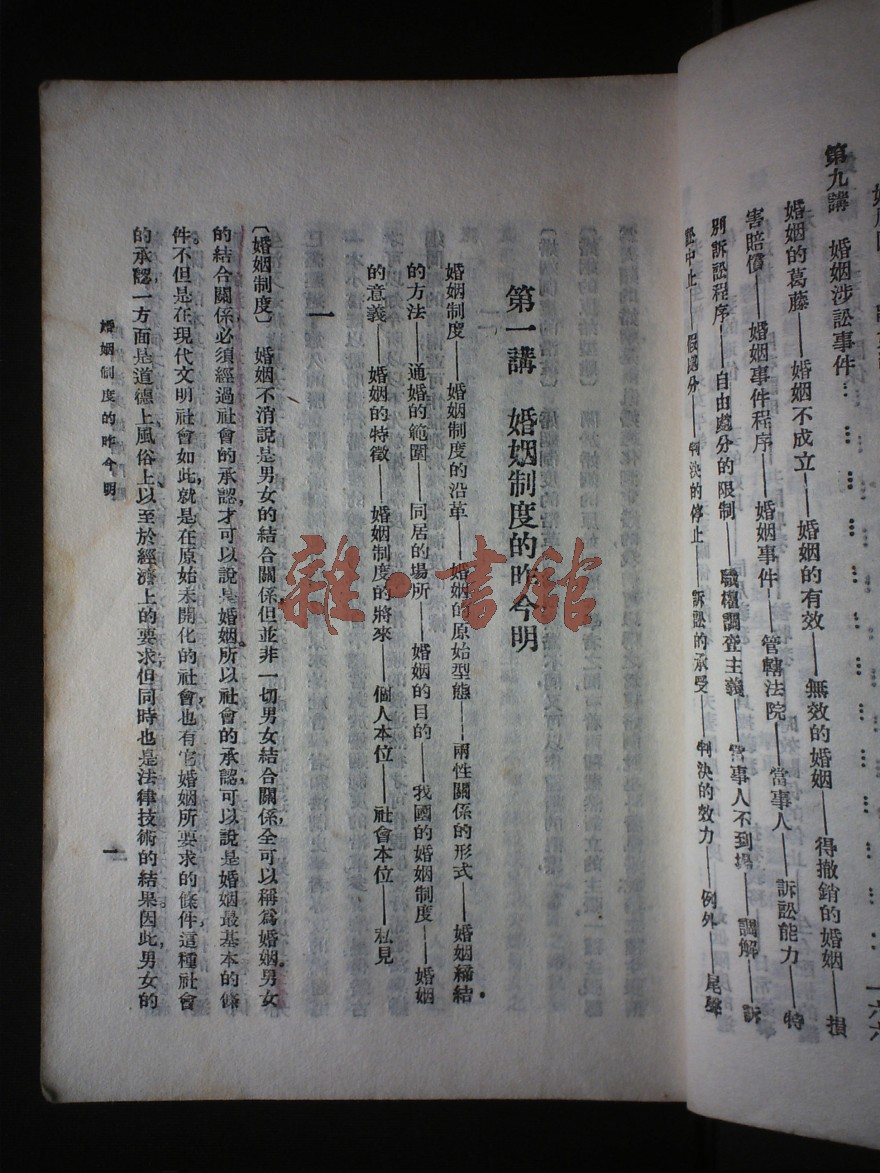 第九講　婚姻涉訟事件…………………………一六六
婚姻的葛藤——婚姻不成立——婚姻的有效——無效的婚姻——得撤銷的婚姻——損
害賠償——婚姻事件程序——婚姻事件——管轄法院——當事人——訴訟能力——特
別訴訟程序——自由處分的限制——職權調查主義——當事人不到場——調解——訴
訟中止——假處分——判決的停止——訴訟的承受——判決的效力——例外——尾聲
第一講　婚姻制度的昨今明
婚姻制度——婚姻制度的沿革——婚姻的原始型態——兩性關係的形式——婚姻締結
的方法——通婚的範圍——同居的場所——婚姻的目的——我國的婚姻制度——婚姻
的意義——婚姻的特徵——婚姻制度的將來——個人本位——社會本位——私見
一
〔婚姻制度〕　婚姻不消說是男女的結合關係，但並非一切男女結合關係，全可以稱爲婚姻。男女
的結合關係必須經過社會的承認，才可以說是婚姻。所以社會的承認，可以說是婚姻最基本的條
件。不但是在現代文明社會如此，就是在原始未開化的社會，也有它婚姻所要求的條件，這種社會
的承認，一方面是道德上，風俗上以至於經濟上的要求，但同時也是法律技術的結果。因此，男女的
婚姻制度的昨今明
一
雜·書館